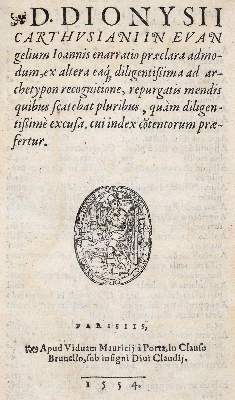 D. DIONYSII
CARTHVSIANI IN EVAN
gelium Ioannis enarratio præclara admo-
dum, ex altera eaq́; diligentissima ad ar-
chetypon recognitione, repurgatis mendis
quibus scatebat pluribus, quàm diligen-
tissimè excusa, cui index cõtentorum præ-
fertur.
PARISIIS,
Apud Viduam Mauricij à Porta, in Clauso
Brunello, sub insigni Diui Claudij.
1554.